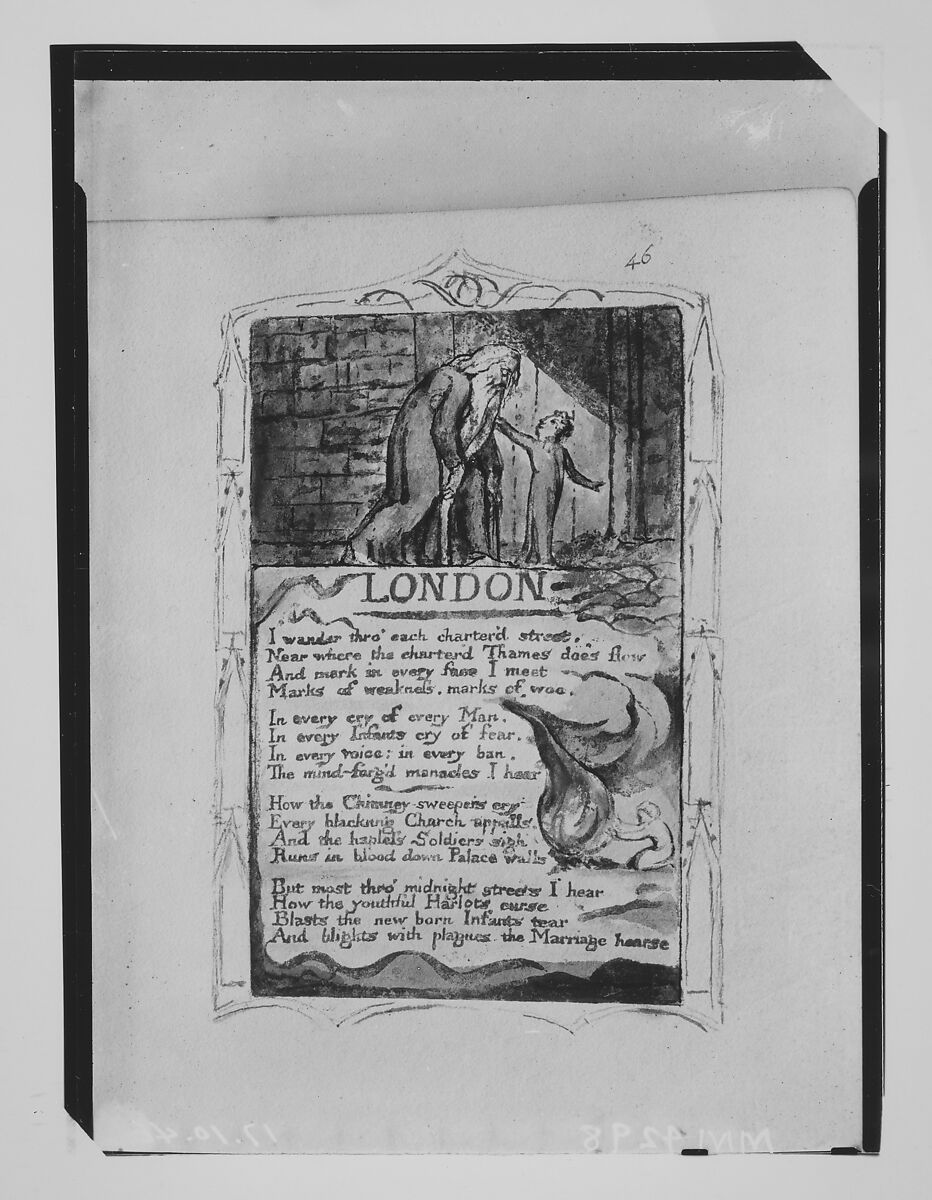 46
LONDON
I wander thro' each charter'd street.
Near where the charter'd Thames does flow
And mark in every face I meet
Marks of weakness, marks of woe.
In every cry of every Man.
In every Infants cry of fear.
In every voice; in every ban.
The mind-forg'd manacles I hear
How the Chimney-sweepers cry
Every blackning Church appalls.
And the hapless Soldiers sigh
Runs in blood down Palace walls
But most thro' midnight streets I hear
How the youthful Harlots curse
Blasts the new born Infants tear
And blights with plagues the Marriage hearse
MM 4298